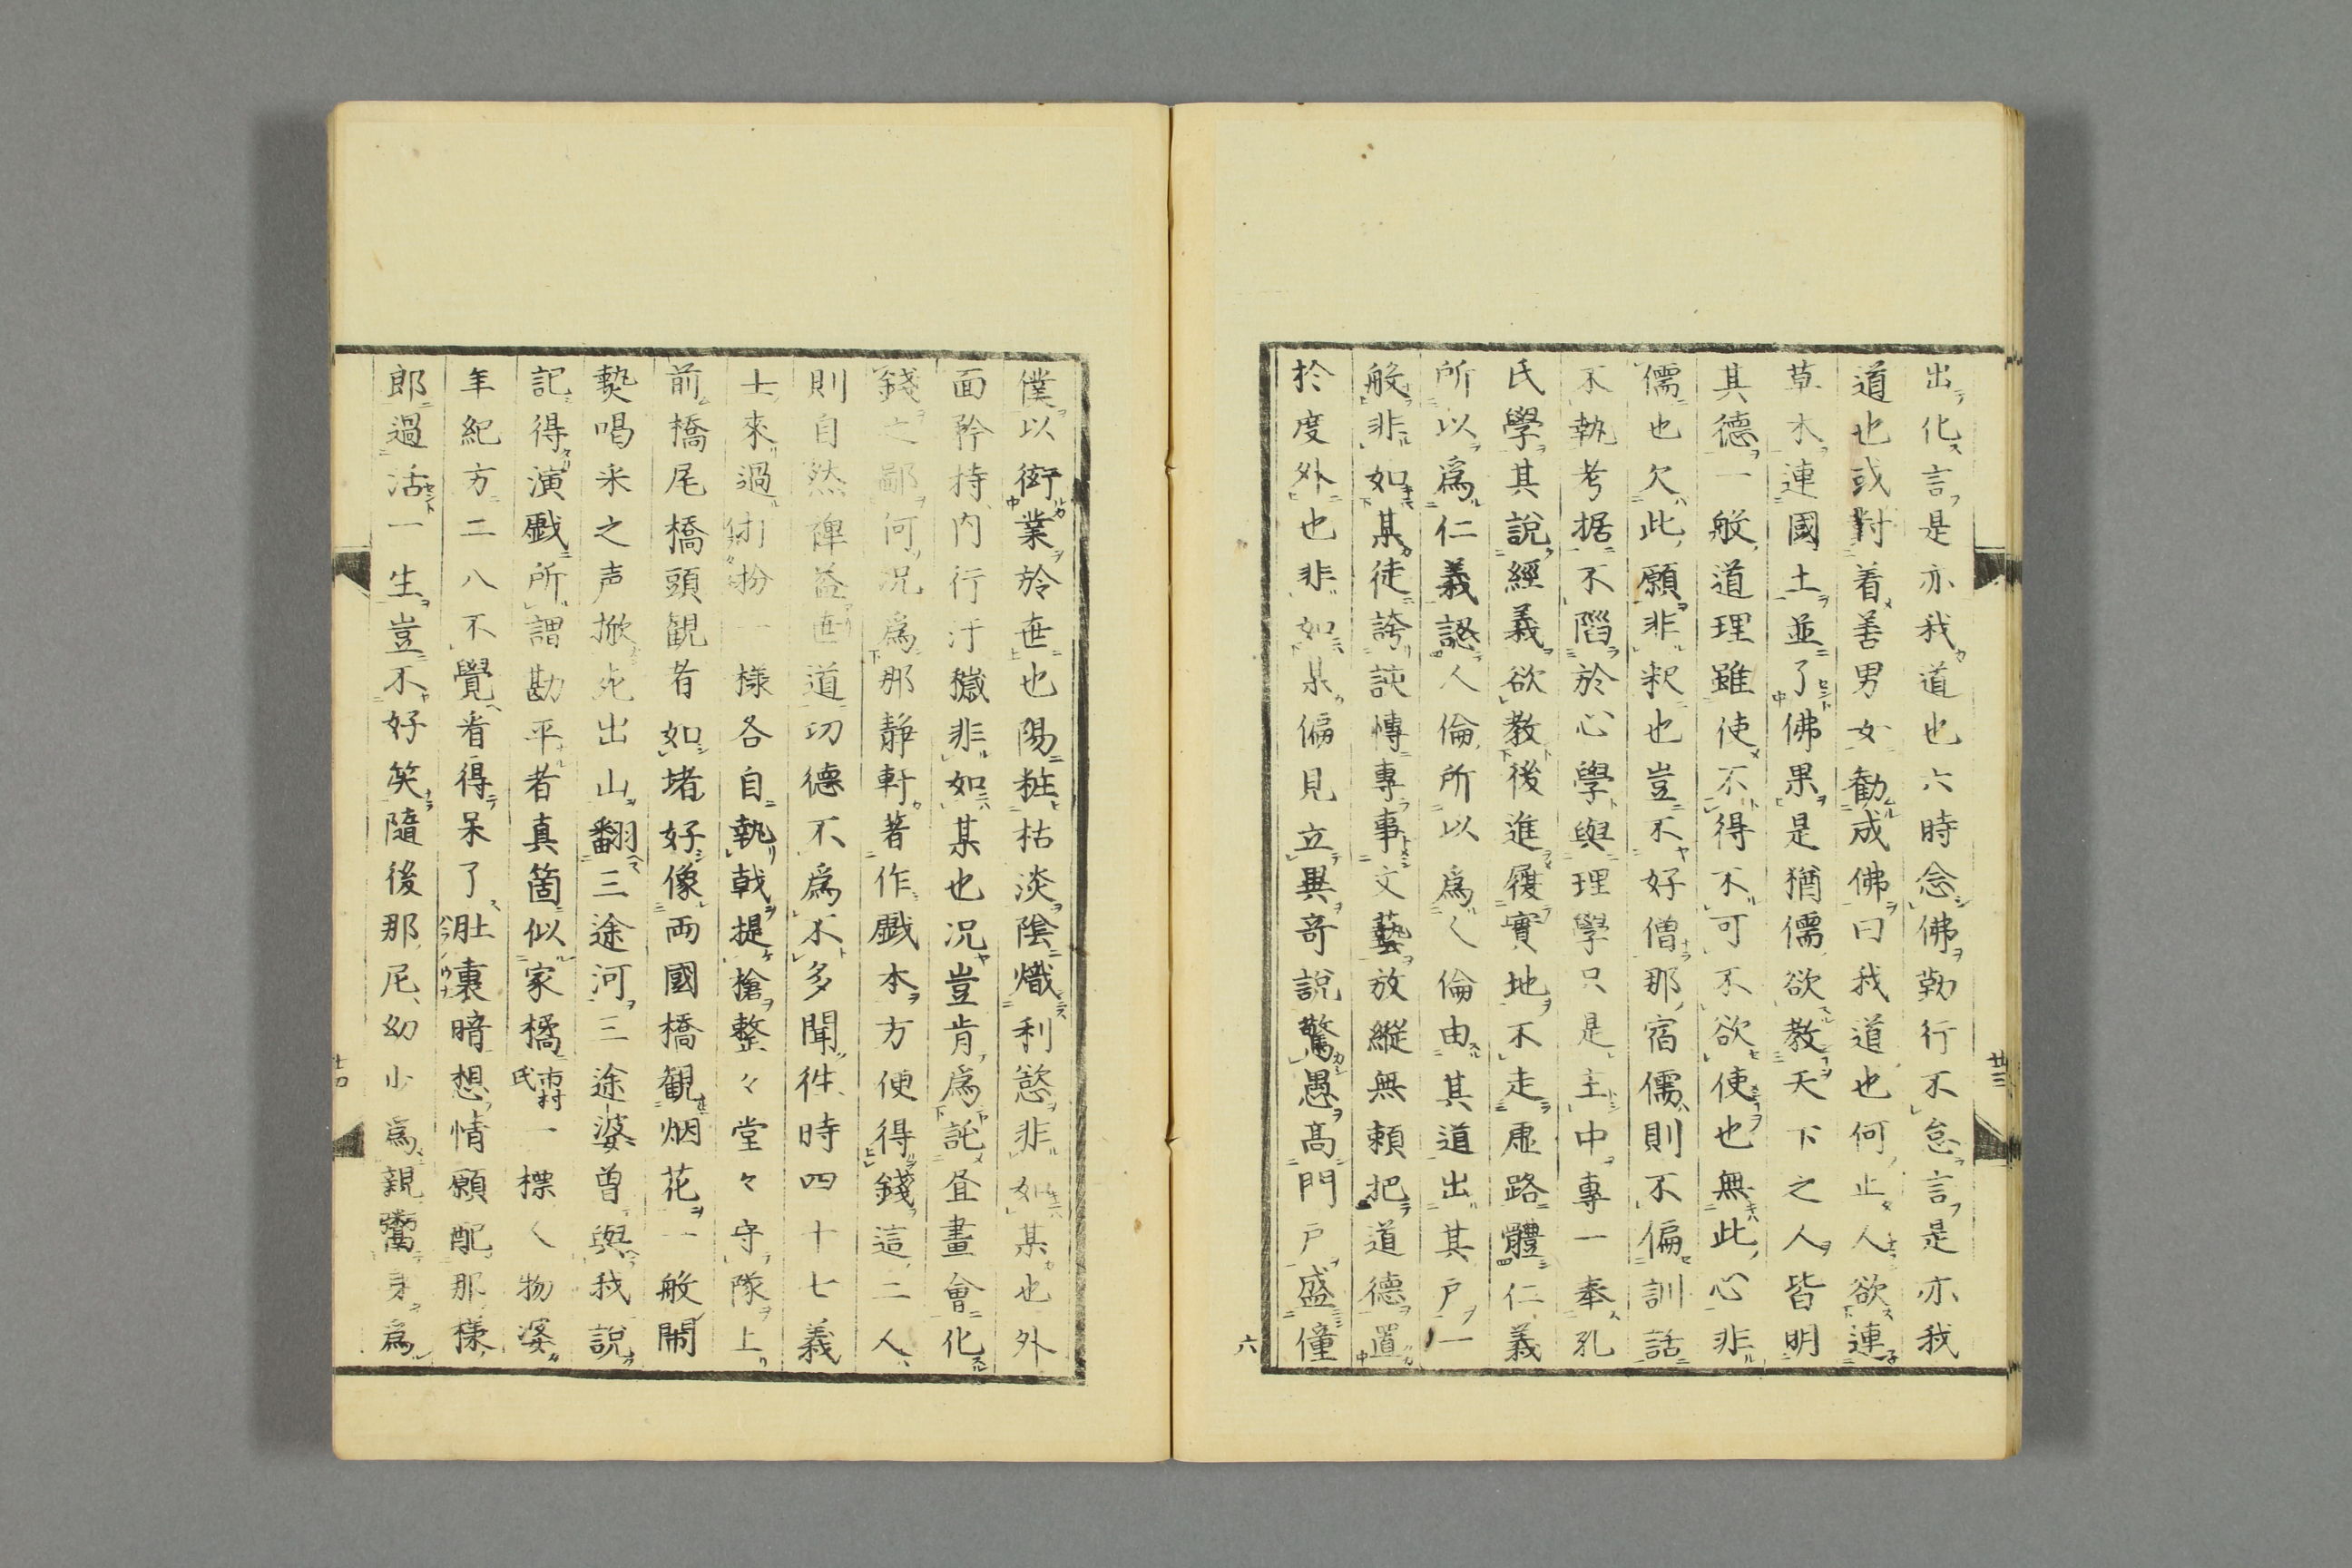 出化言是亦我道也六時念佛勤行不怠言是亦我
道也或對着善男女勧成佛曰我道也何止人欲連
草木連國土並了佛果是猶儒欲教天下之人皆明
其德一般道理雖使不得不可不欲使也無此心非
儒也欠此願非釈也豈不好僧那宿儒則不偏訓話
不執考据不陷於心學與理學只是主中專一奉孔
氏學其說經義欲教後進履實地不走虛路體仁義
所以爲仁義認人倫所以爲人倫由其道出其戸一
般非如某徒誇談慱專事文藝放縱無賴把道德置
於度外也非如某偏見立異奇說驚愚高門戸盛僮
六
廿三
僕以衒業於世也陽粧枯淡陰熾利慾非如某也外
面矜持内行汙穢非如某也況豈肯爲託昼畫會化
錢之鄙何況爲那靜軒著作戲本方便得錢這二人
則自然裨益世道功德不爲不多聞徃時四十七義
士來過打扮一様各自執戟提槍整々堂々守隊上
前橋尾橋頭観者如堵好像両國橋観烟花一般鬧
熱喝采之声掀死出山翻三途河三途婆曽與我說
記得演戲所謂勘平者真箇似家橘市村氏一標々物婆
年紀方二八不覺看得呆了肚裏暗想情願配那様
郎過活一生豈不好笑隨後那尼幼少爲親鬻身爲
廿四